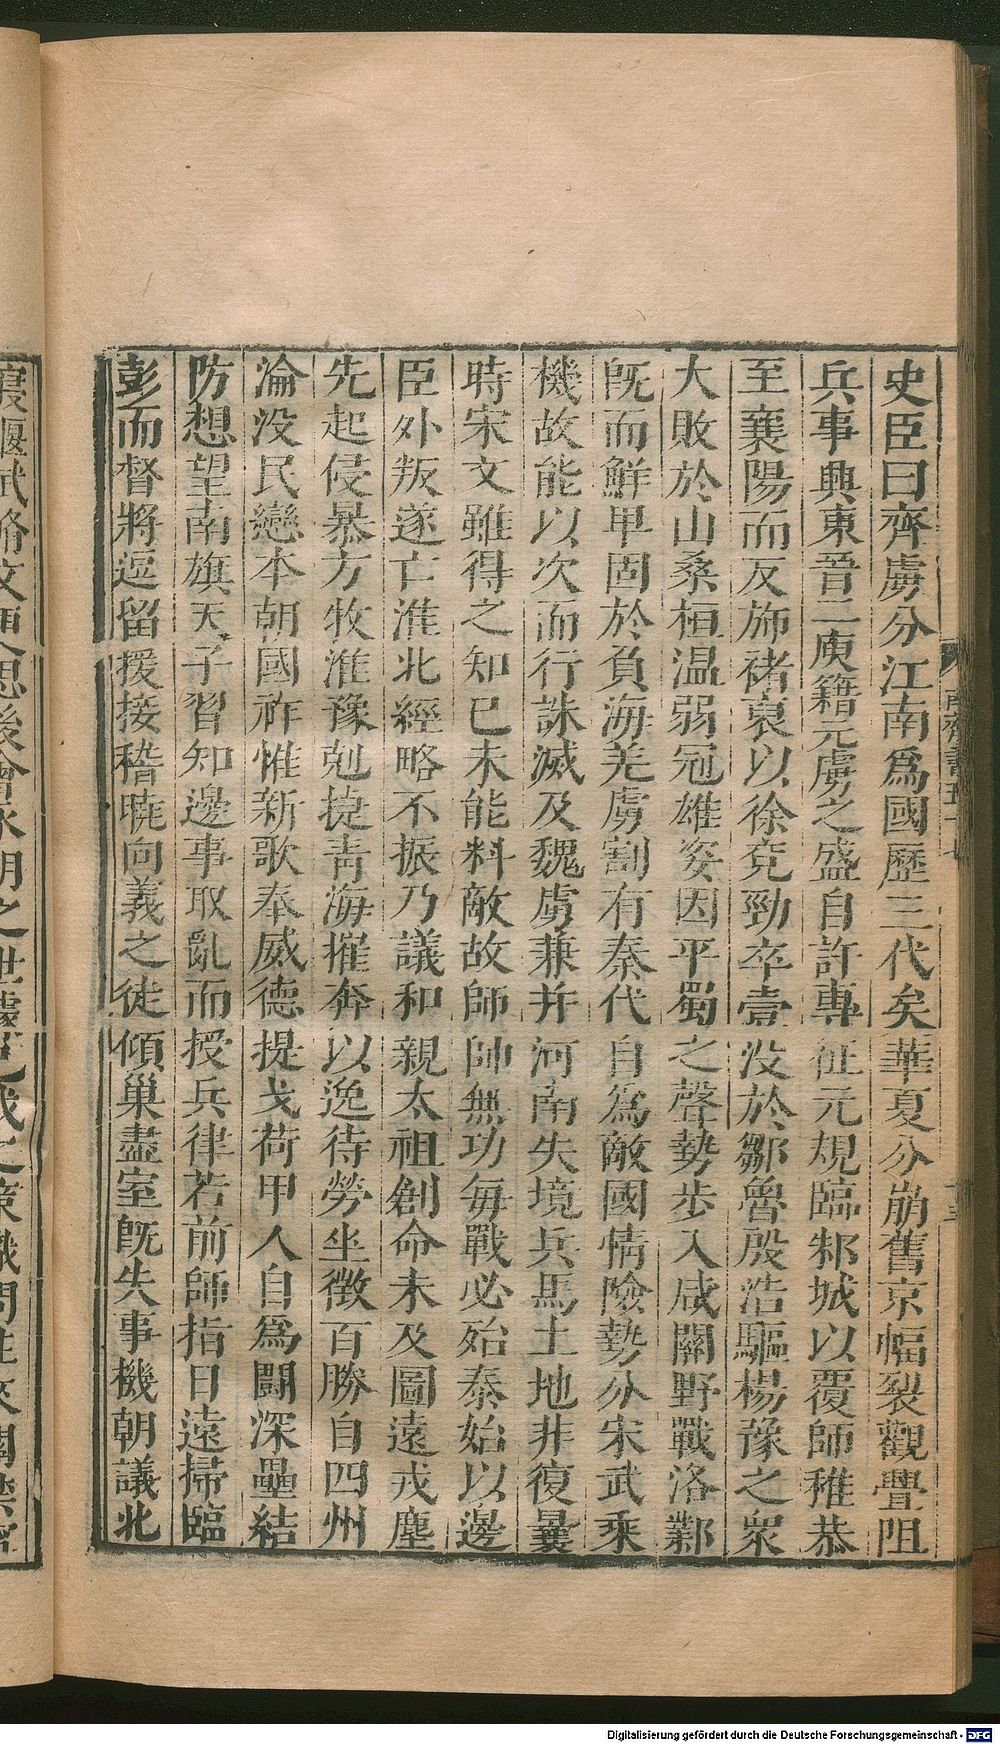 史臣曰齊虜分江南爲國歷三代矣華夏分崩舊京幅裂觀舋阻
兵事興東晉二庾籍元虜之盛自許專征元規臨邾城以覆師稚恭
至襄陽而反旆褚裒以徐兗勁卒壹没於鄒魯殷浩驅楊豫之衆
大敗於山桑桓温弱冠雄姿因平蜀之聲勢步入咸關野戰洛鄴
旣而鮮卑固於負海羌虜割有秦代自爲敵國情險勢分宋武乘
機故能以次而行誅滅及魏虜兼并河南失境兵馬土地非復曩
時宋文雖得之知已未能料敵故師帥無功每戰必殆泰始以邊
臣外叛遂亡淮北經略不振乃議和親太祖創命未及圖遠戎塵
先起侵暴方牧淮豫剋捷青海摧奔以逸待勞坐徵百勝自四州
淪没民戀本朝國祚惟新歌奉威德提戈荷甲人自爲鬭深壘結
防想望南旗天子習知邊事取亂而授兵律若前師指日遠掃臨
彭而督將逗留援接稽曉向義之徒傾巢盡室旣失事機朝議北
南齊書五十七
十三
略文
思後會永明之世據已成之策職問往來關禁寧
Digitalisierung gefördert durch die Deutsche Forschungsgemeinschaft - DFG